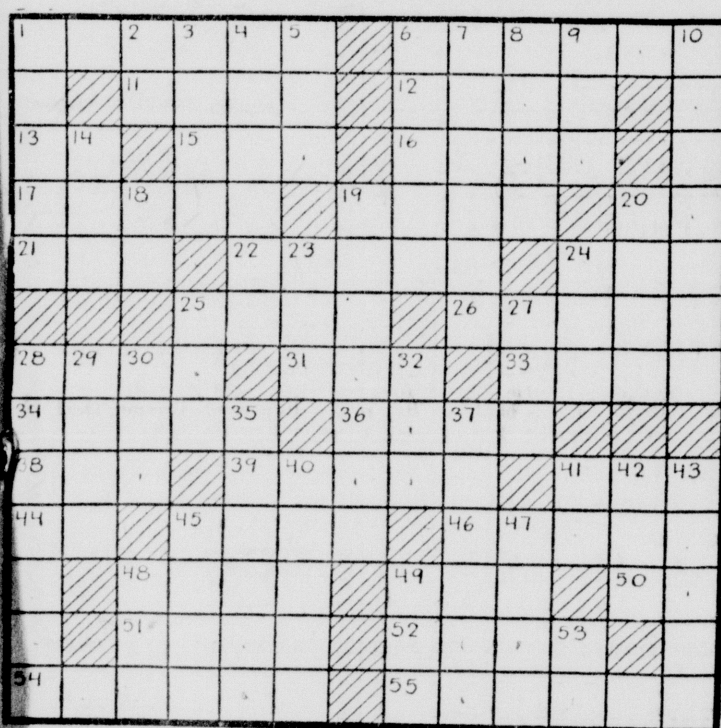 1 2 3 4 5 6 7 8 9 10
11 12
13 14 15 16
17 18 19 20
21 22 23 24
25 26 27
28 29 30 31 32 33
34 35 36 37
38 39 40 41 42 43
44 45 46 47
48 49 50
51 52 53
54 55